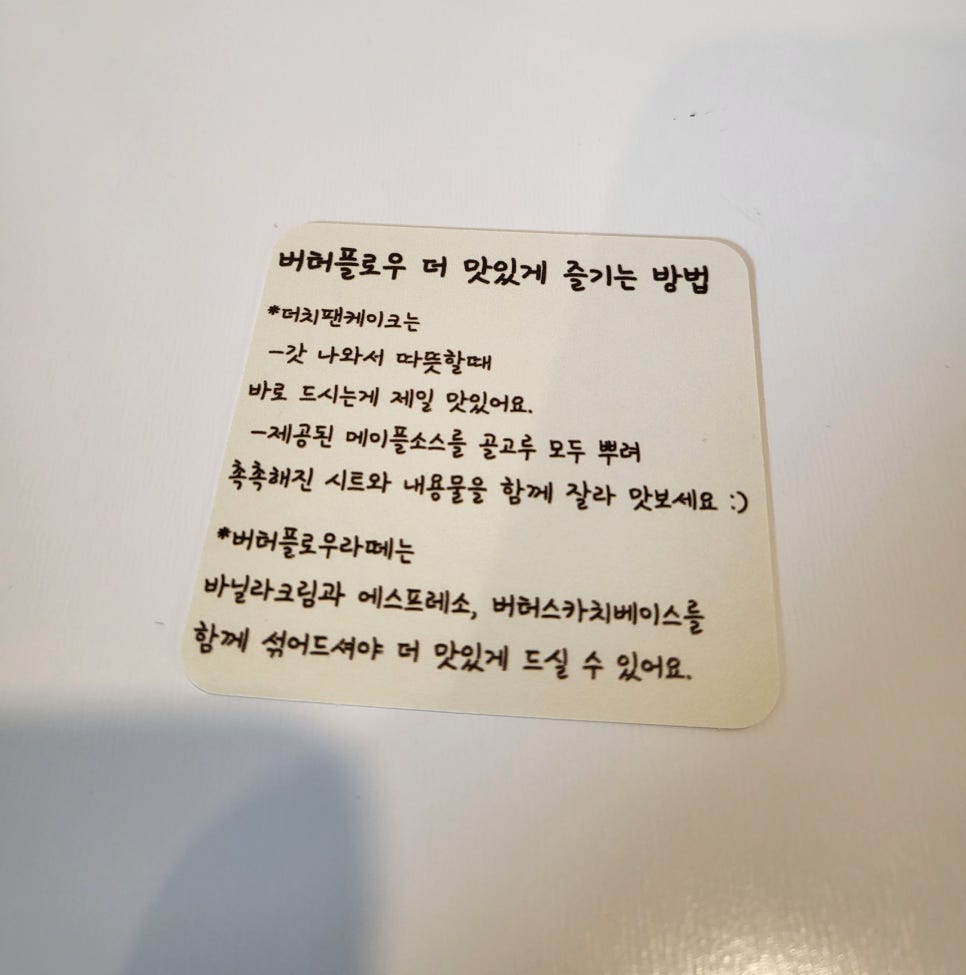 버터플로우 더 맛있게 즐기는 방법
*더치팬케이크는
-갓 나와서 따뜻할때
바로 드시는게 제일 맛있어요.
-제공된 메이플소스를 골고루 모두 뿌려
촉촉해진 시트와 내용물을 함께 잘라 맛보세요 :)
*버터플로우라떼는
바닐라크림과 에스프레소, 버터스카치베이스를
함께 섞어드셔야 더 맛있게 드실 수 있어요.